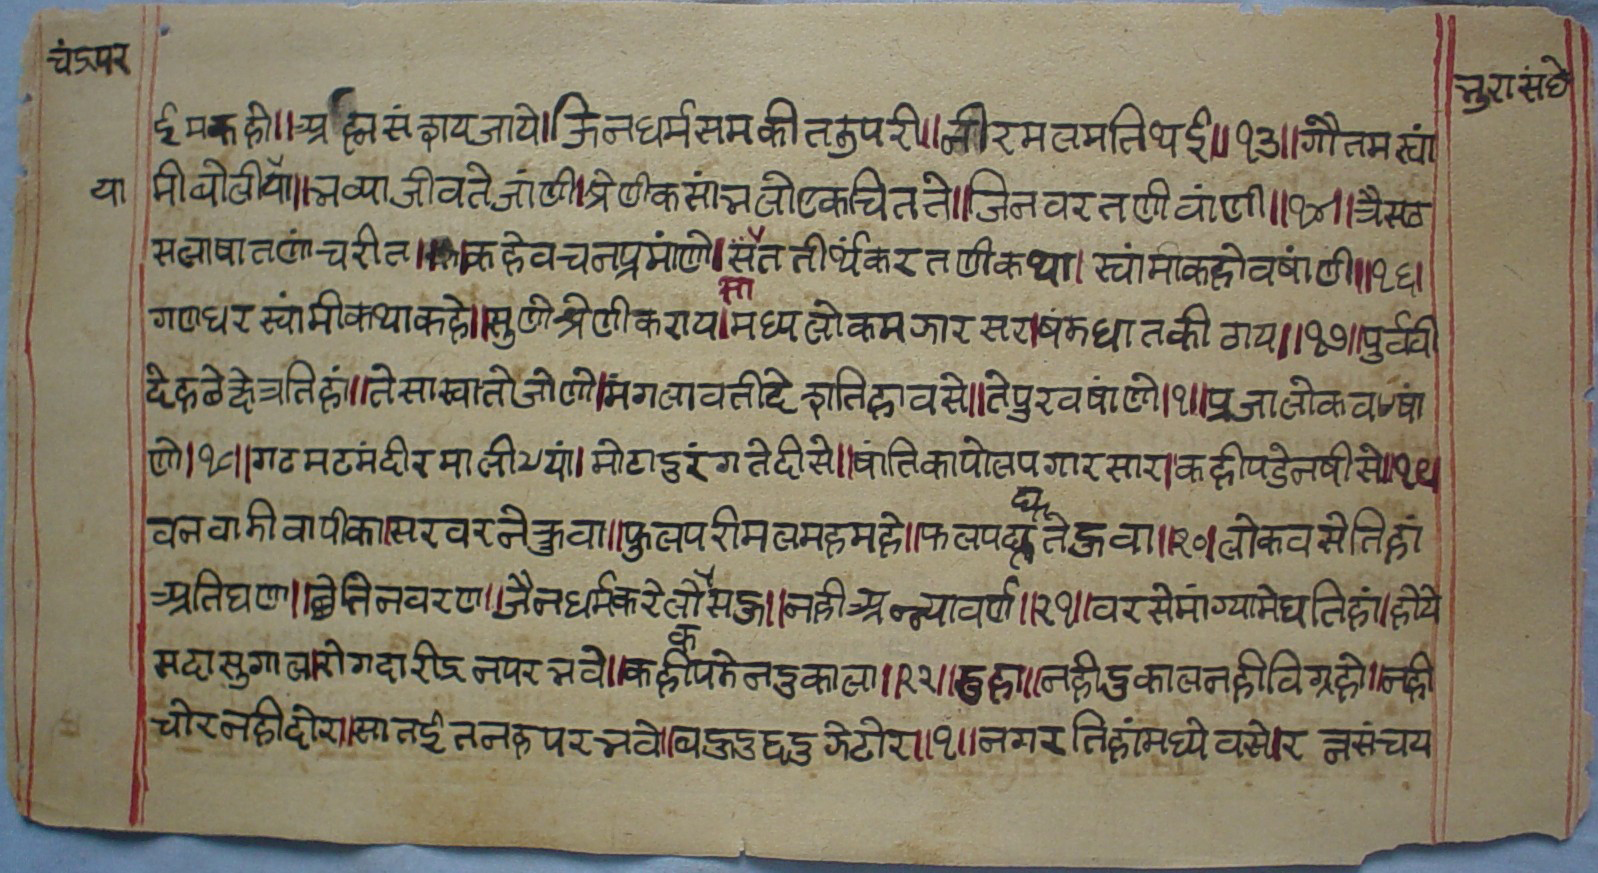 चंडपर
भुरासंघे
ईमकहो॥ अह्म संशय जाये। जिनधर्म समकीत उपरी॥ नीरमल मति थई॥१३॥ गौतम स्वां
या
मी बोलीयाँ॥ भव्या जीव ते जांणी। श्रेणीक सांभलो एक चितने॥ जिनवर तणी वांणी॥१५॥ त्रैसठ
सलाषा तणां चरीत॥ कहे वचन प्रमांणे। सैत तीर्थंकर तणी कथा। स्वांमी कहो वषांणी॥१६।
गणधर स्वांमी कथा कहे॥ सुणी श्रेणीक राय। मध्यलोक मझार सरा षंड धातकी गय॥१७॥ पुर्ववी
देह छे क्षेत्र तिहां॥ ते सास्वातो जांणो। मंगलावती देश तिहा वसे॥ ते पुर वषांणे।१॥ प्रजालोक वण्षां
णे।१८॥ गढ मढ मंदीर मालीय्यां। मोटा डुरंग ते दीसे॥ षांतिका पोल पगार सार। कही पडे न षीसे॥१९
वन वाडी वापीका। सरवर ने कुवा॥ फुल परीमल महमहे॥ फल पक्क ते हुवा॥२०। लोक वसे तिहां
अति घणा॥ छे तिन वरण॥ जैनधर्म करे लोँ सहु॥ नही अन्न्यावर्ण॥२१॥ वरसे मांग्या मेघ तिहां। होये
क
सदा सुगाल। रोग दारीद्र न परभवे॥ कही पडे न डुकाला॥२२॥ डुहा॥ नही डुकाल नही विग्रहो॥ नही
चोर नही दोर। सात ईत नह परभवे॥ वहु डु छडु गे टोर॥१॥ नगर तिहां मध्ये वसे। रत्नसंचय